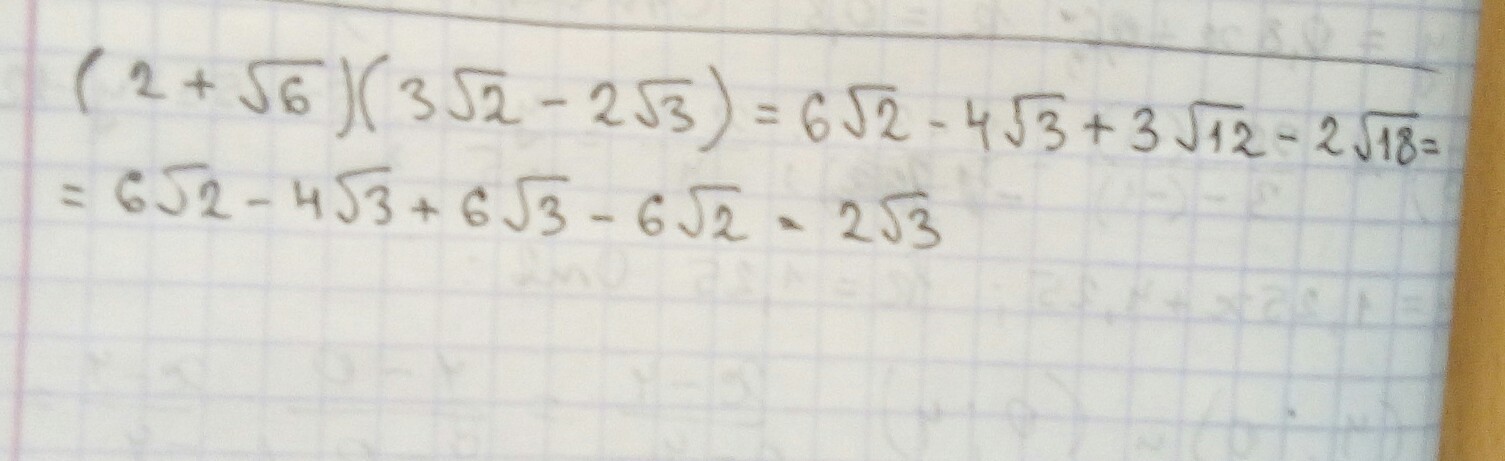 (2 + √6)(3√2 - 2√3) = 6√2 - 4√3 + 3√12 - 2√18 =
= 6√2 - 4√3 + 6√3 - 6√2 - 2√3